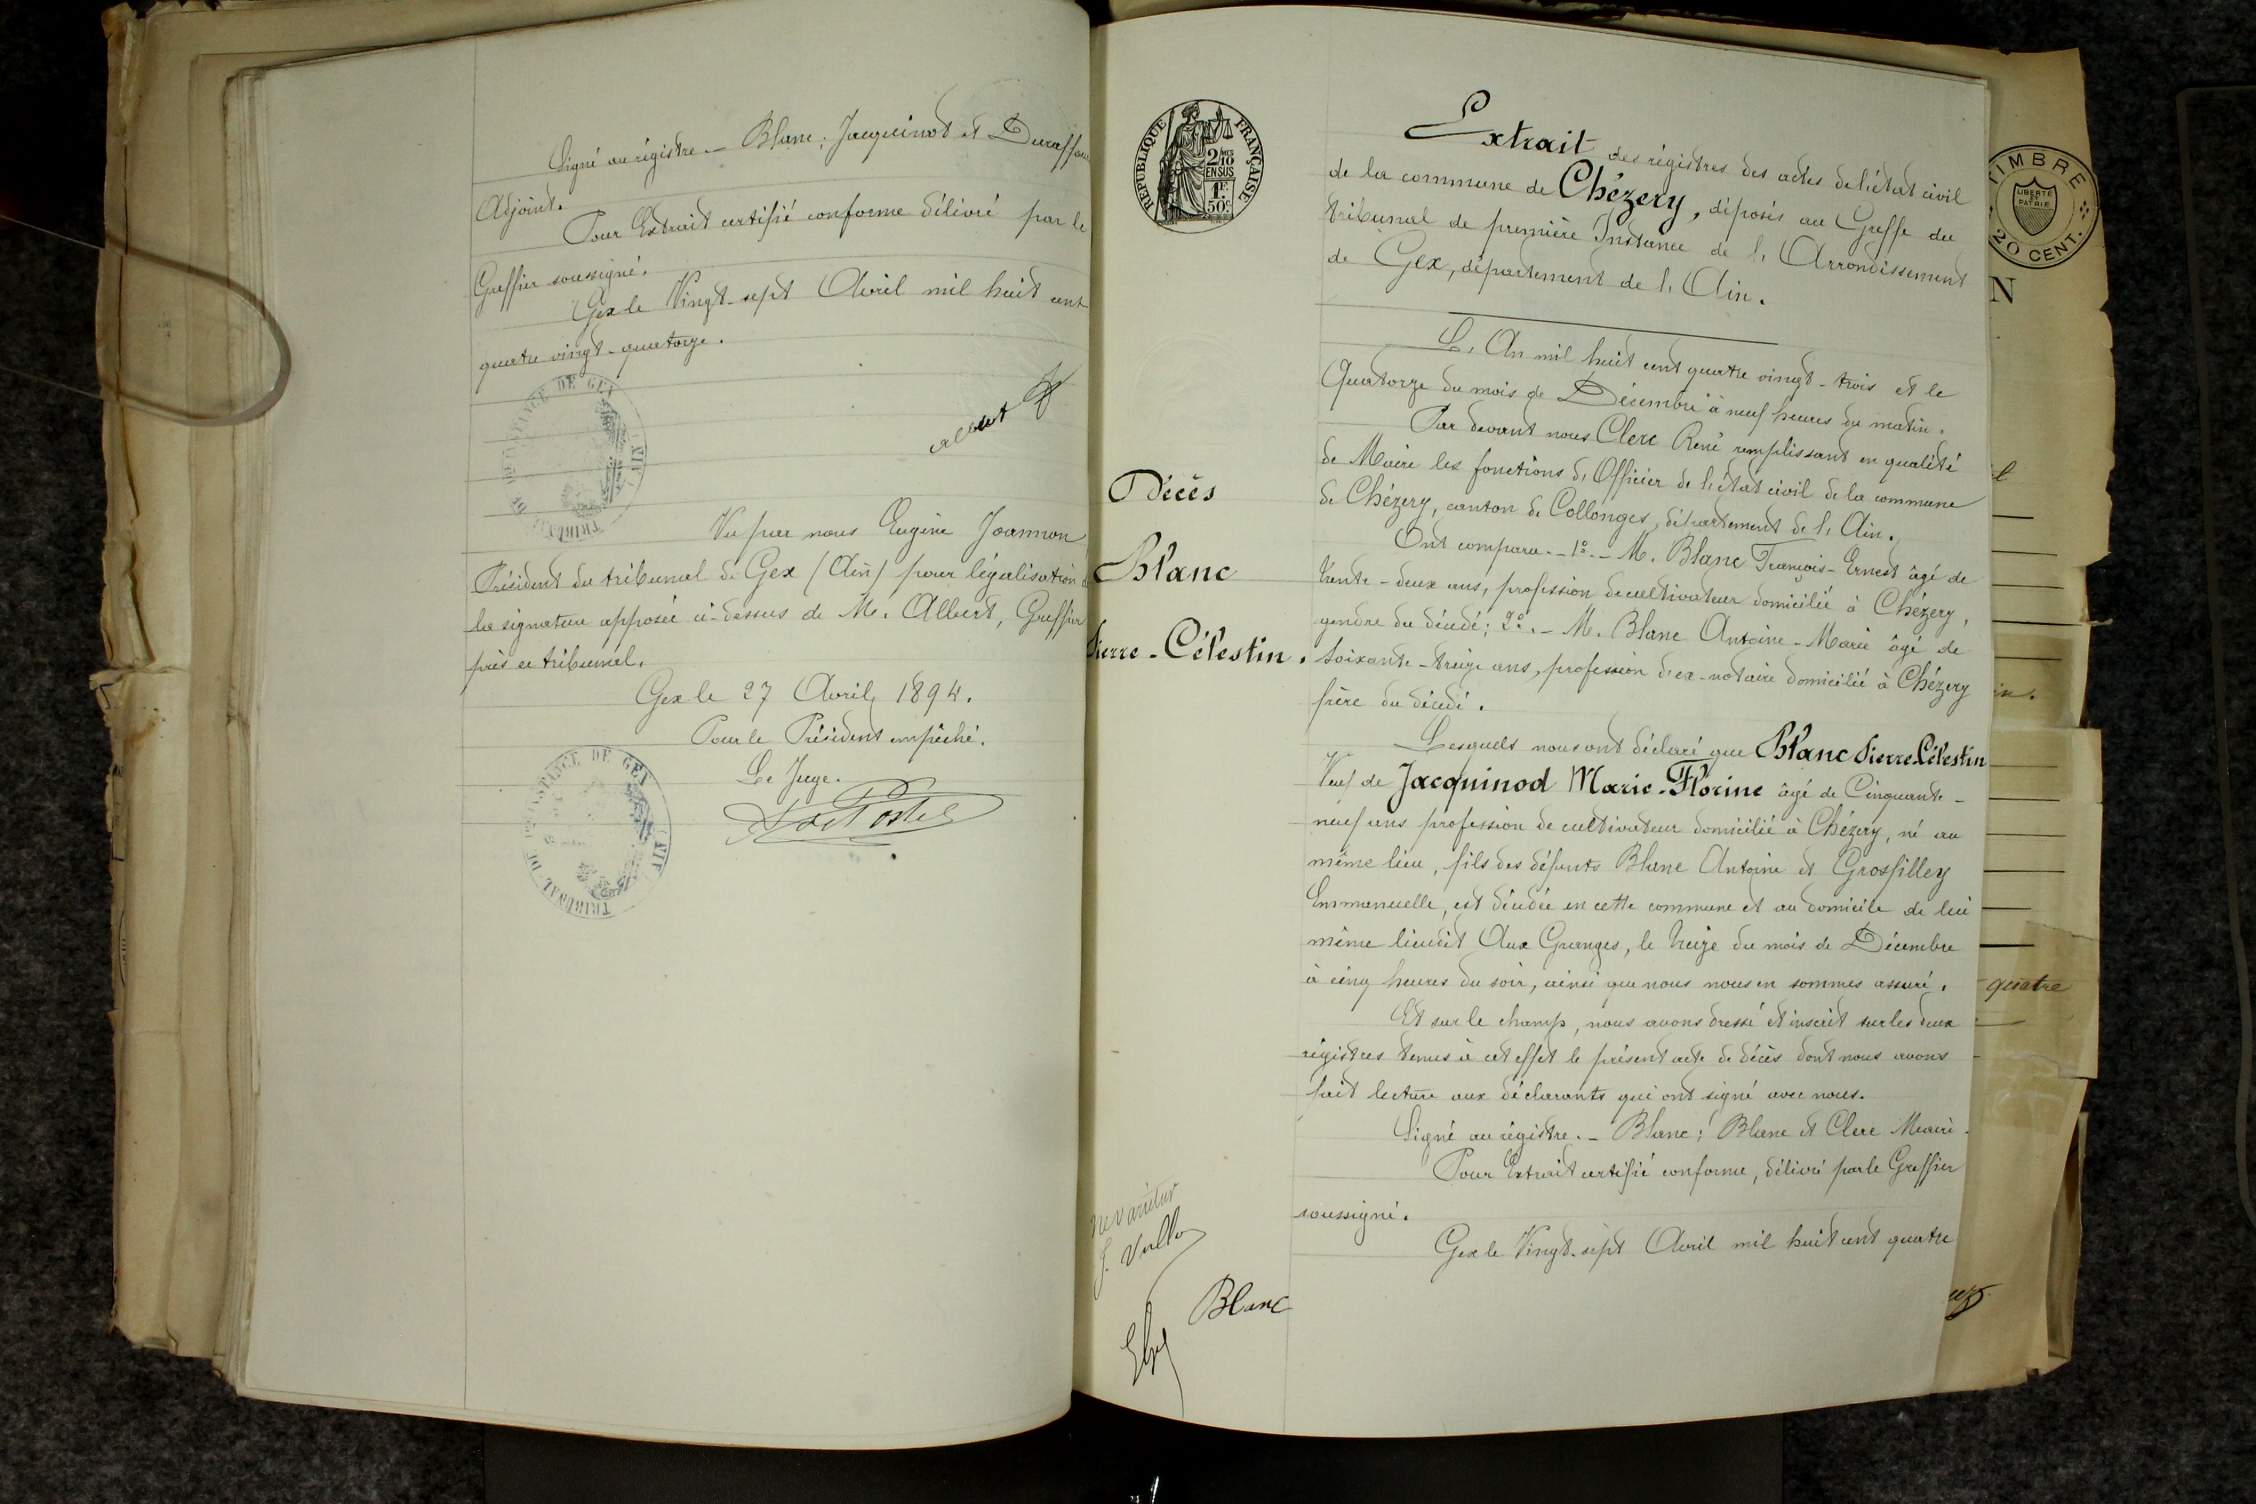 Signé au régistre. - Blanc; Jacquinod et Duraffour
Adjoint.
Pour Extrait certifié conforme délivré par le
Greffier soussigné.
Gex le Vingt-sept Avril mil huit cent
quatre vingt-quatorze.
Albert
TRIBUNAL DE 1RE INSTANCE DE GEX (AIN)
Vu par nous Eugène Joannon
Président du tribunal de Gex (Ain) pour légalisation de
la signature apposée ci-dessus de M. Albert, Greffier
près ce tribunal.
Gex le 27 Avril 1894.
Pour le Président empêché.
Le Juge.
TRIBUNAL DE 1RE INSTANCE DE GEX (AIN)
RÉPUBLIQUE FRANÇAISE
2/10 EN SUS
1F 50c
Décès
Blanc
Pierre-Célestin.
Extrait des régistres des actes de l'état civil
de la commune de Chézery, déposés au Greffe du
tribunal de première Instance de l'Arrondissement
de Gex, département de l'Ain.
L'An mil huit cent quatre vingt-trois et le
Quatorze du mois de Décembre à neuf heures du matin.
Par devant nous Clerc René remplissant en qualité
de Maire les fonctions d'Officier de l'état civil de la commune
de Chézery, canton de Collonges, département de l'Ain.
Ont comparu. - 1o. - M. Blanc François-Ernest âgé de
trente-deux ans, profession de cultivateur domicilié à Chézery,
gendre du décédé; 2o. - M. Blanc Antoine-Marie âgé de
soixante-treize ans, profession d'ex-notaire domicilié à Chézery
frère du décédé.
Lesquels nous ont déclaré que Blanc Pierre-Célestin
Veuf de Jacquinod Marie-Florine âgé de Cinquante-
neuf ans profession de cultivateur domicilié à Chézery, né au
même lieu, fils des défunts Blanc Antoine et Grosfilley
Emmanuelle, est décédée en cette commune et au domicile de lui
même lieudit Aux Granges, le treize du mois de Décembre
à cinq heures du soir, ainsi que nous nous en sommes assuré.
Et sur le champ, nous avons dressé et inscrit sur les deux
régistres tenus à cet effet le présent acte de décès dont nous avons
fait lecture aux déclarants qui ont signé avec nous.
Signé au régistre. - Blanc; Blanc et Clerc Maire.
Pour Extrait certifié conforme, délivré par le Greffier
soussigné.
Gex le Vingt-sept Avril mil huit cent quatre
ne varietur
Blanc
TIMBRE
LIBERTÉ ET PATRIE
20 CENT.
N
in.
quatre